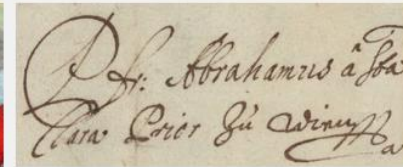 P fr: Abrahamus â Sta
Clara Prior Zů Wienn